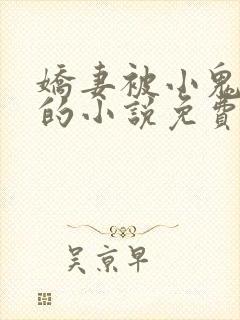 嬌妻被小鬼
的小說免費
吳京早